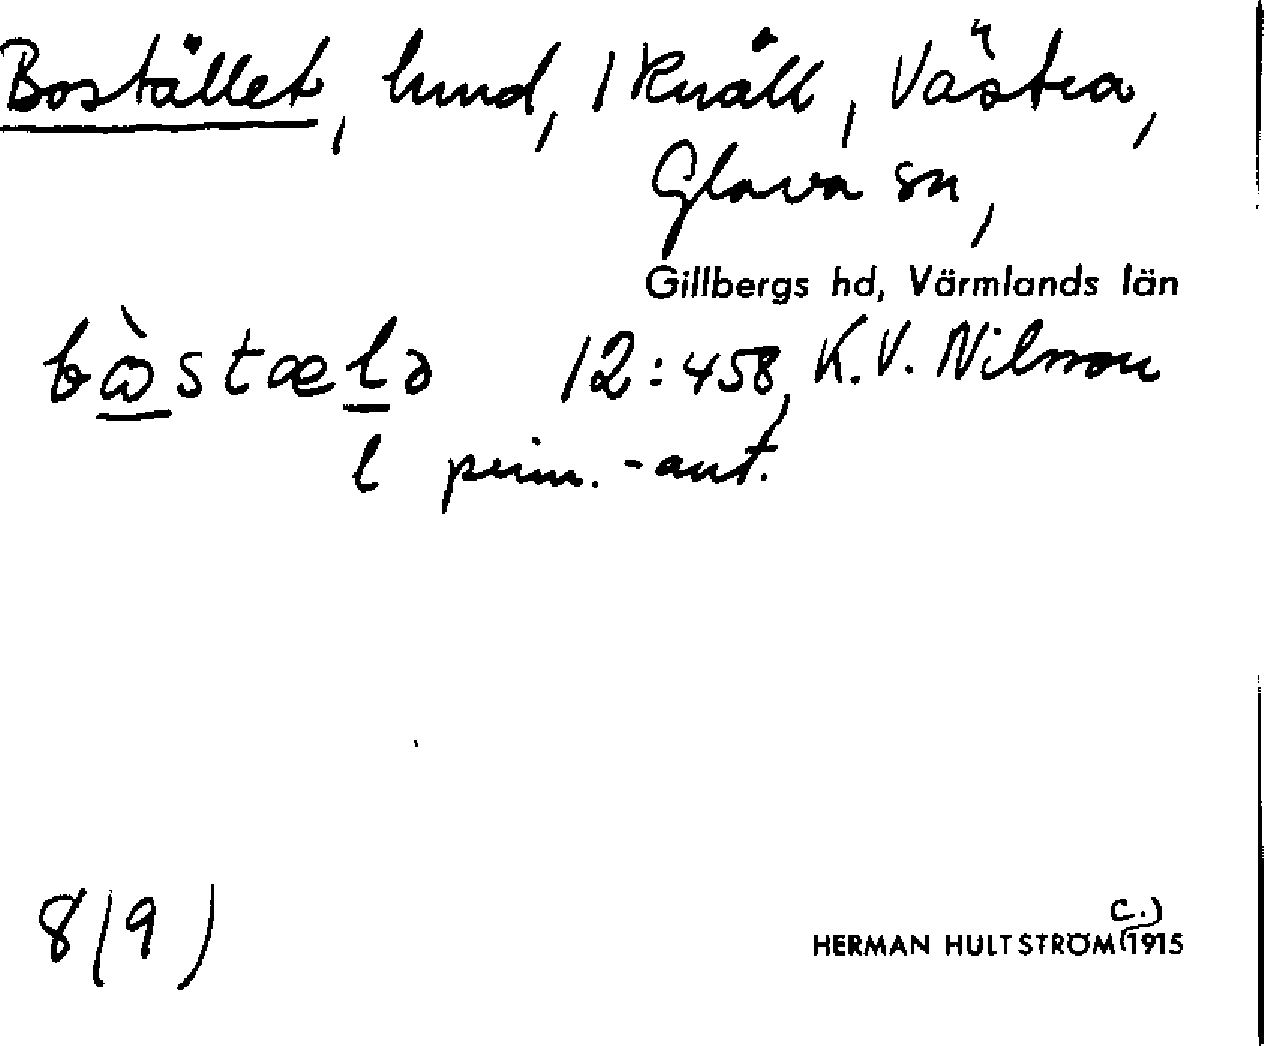 Bostället, lund, 1 Knäll, Västra,
Glava sn,
Gillbergs hd, Värmlands län
bὼstælə 12:458, K.V. Nilsson
l prim.-ant.
8(9)
c.)
HERMAN HULTSTRÖM (1915